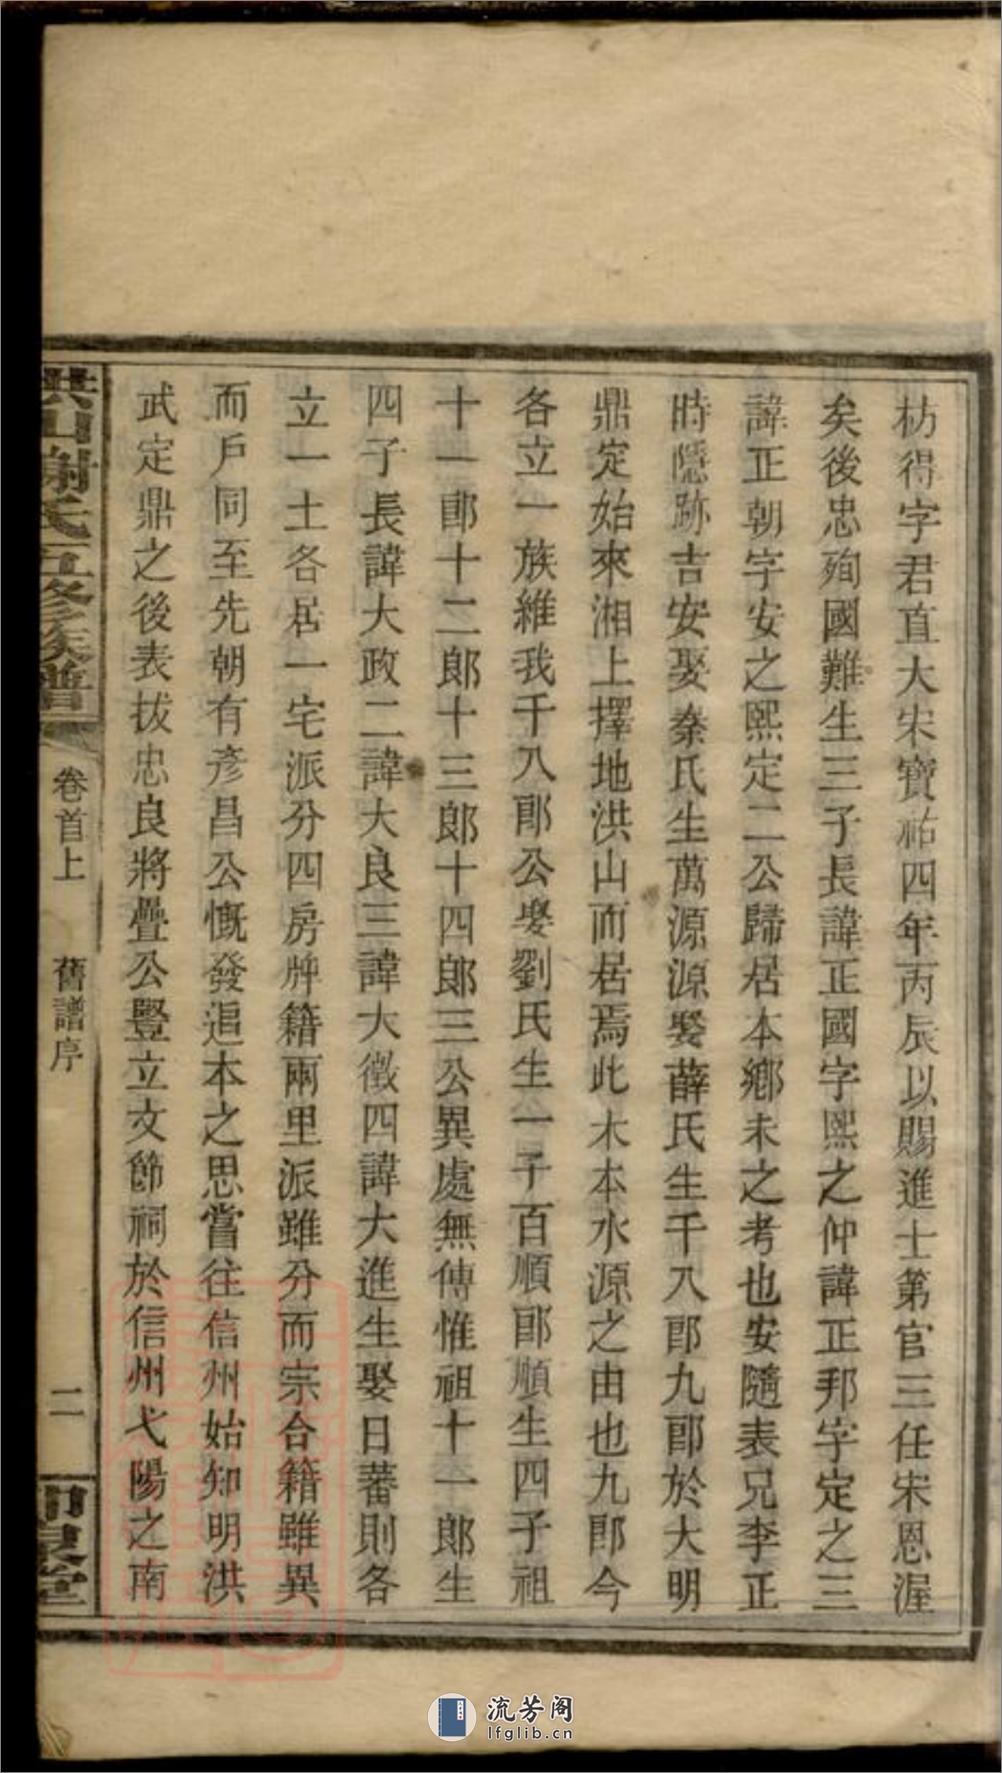 枋得字君直大宋寶祐四年丙辰以賜進士第官三任宋恩渥
矣後忠殉國難生三子長諱正國字熙之仲諱正邦字定之三
諱正朝字安之熙定二公歸居本鄉未之考也安隨表兄李正
時隱跡吉安娶秦氏生萬源源娶薛氏生千八郎九郎於大明
鼎定始來湘上擇地洪山而居焉此木本水源之由也九郎今
各立一族維我千八郎公娶劉氏生一子百順郎順生四子祖
十一郎十二郎十三郎十四郎三公異處無傳惟祖十一郎生
四子長諱大政二諱大良三諱大徵四諱大進生娶日蕃則各
立一土各居一宅派分四房牌籍兩里派雖分而宗合籍雖異
而戶同至先朝有彥昌公慨發追本之思嘗往信州始知明洪
武定鼎之後表拔忠良將疊公豎立文節祠於信州弋陽之南
洪山謝氏五修族譜
卷首上 舊譜序
二
流芳阁
lfglib.cn